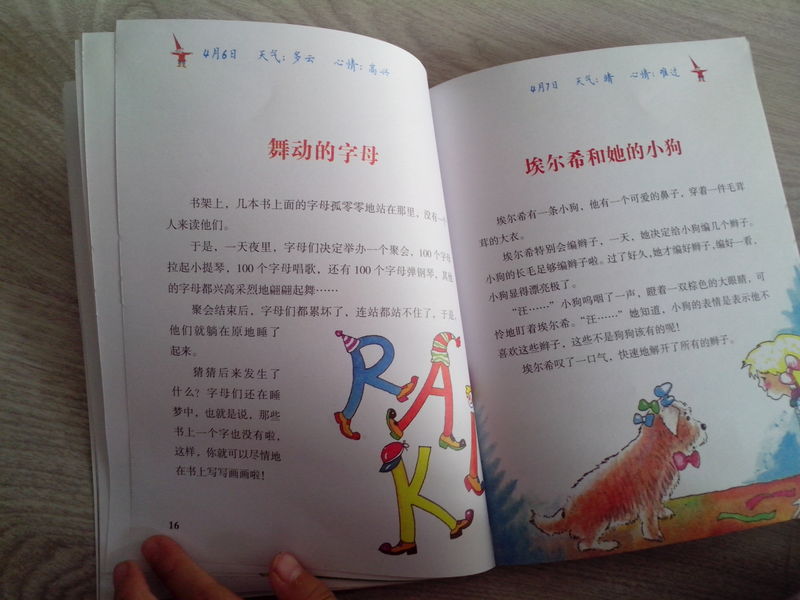 4月6日 天气：多云 心情：高兴
舞动的字母
书架上，几本书上面的字母孤零零地站在那里，没有一个
人来读他们。
于是，一天夜里，字母们决定举办一个聚会，100个字母
拉起小提琴，100个字母唱歌，还有100个字母弹钢琴，其他
的字母都兴高采烈地翩翩起舞……
聚会结束后，字母们都累坏了，连站都站不住了，于是，
他们就躺在原地睡了
起来。
猜猜后来发生了
什么？字母们还在睡
梦中，也就是说，那些
书上一个字也没有啦，
这样，你就可以尽情地
在书上写写画画啦！
R A
K
16
4月7日 天气：晴 心情：难过
埃尔希和她的小狗
埃尔希有一条小狗，他有一个可爱的鼻子，穿着一件毛茸
茸的大衣。
埃尔希特别会编辫子，一天，她决定给小狗编几个辫子。
小狗的长毛足够编辫子啦。过了好久，她才编好辫子，编好一看，
小狗显得漂亮极了。
“汪……”小狗呜咽了一声，瞪着一双棕色的大眼睛，可
怜地盯着埃尔希。“汪……”她知道，小狗的表情是表示他不
喜欢这些辫子，这些不是狗狗该有的呢！
埃尔希叹了一口气，快速地解开了所有的辫子。